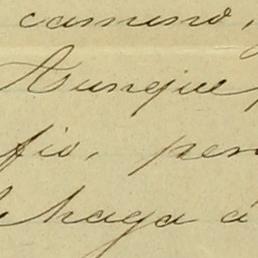 camino,
Aunque
fio, per
haga á